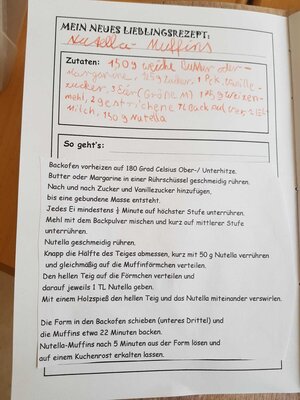 MEIN NEUES LIEBLINGSREZEPT:
Nutella-Muffins
Zutaten: 150g weiche Butter oder
Margarine, 125g Zucker, 1 Pck. Vanille-
zucker, 3 Eier (Größe M) 175g Weizen-
mehl, 2 gestrichene TL Back
Milch, 150g Nutella
So geht's:
Backofen vorheizen auf 180 Grad Celsius Ober-/ Unterhitze.
Butter oder Margarine in einer Rührschüssel geschmeidig rühren.
Nach und nach Zucker und Vanillezucker hinzufügen,
bis eine gebundene Masse entsteht.
Jedes Ei mindestens ½ Minute auf höchster Stufe unterrühren.
Mehl mit dem Backpulver mischen und kurz auf mittlerer Stufe
unterrühren.
Nutella geschmeidig rühren.
Knapp die Hälfte des Teiges abmessen, kurz mit 50 g Nutella verrühren
und gleichmäßig auf die Muffinförmchen verteilen.
Den hellen Teig auf die Förmchen verteilen und
darauf jeweils 1 TL Nutella geben.
Mit einem Holzspieß den hellen Teig und das Nutella miteinander verwirslen.
Die Form in den Backofen schieben (unteres Drittel) und
die Muffins etwa 22 Minuten backen.
Nutella-Muffins nach 5 Minuten aus der Form lösen und
auf einem Kuchenrost erkalten lassen.